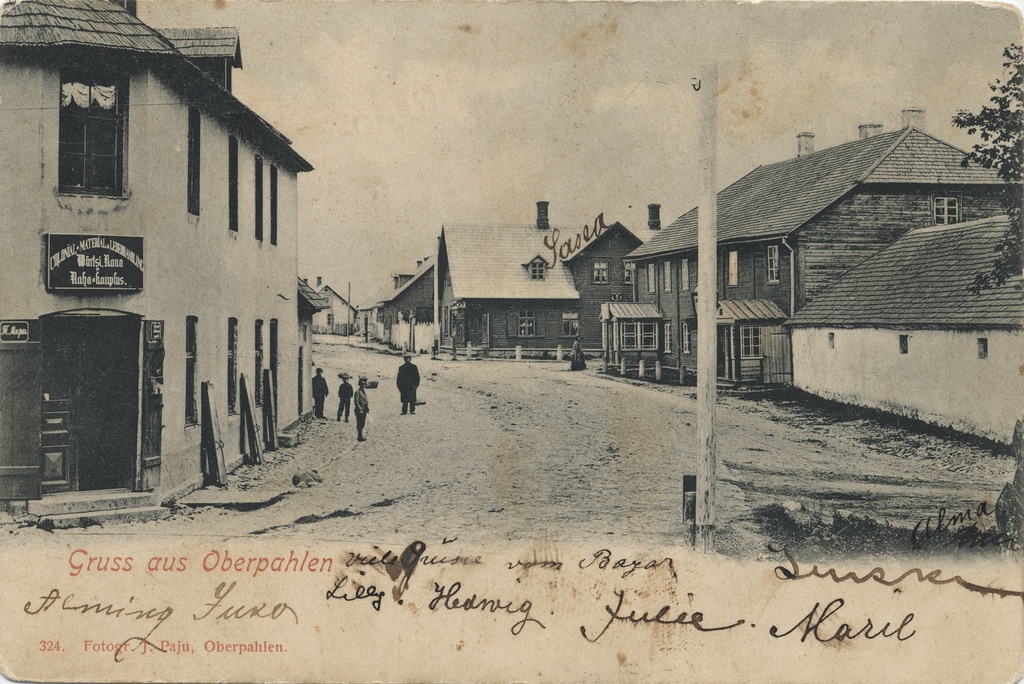 COLONIAL-MATERIAL & LEDERHANDLUNG
Würtsi, Rana
&
Naha-kauplus.
Sassa
Alma
Gruss aus Oberpahlen
viele Grüsse vom Bazar
Lilly. Hedwig. Julie. Maril
324. Fotogr. J. Paju, Oberpahlen.